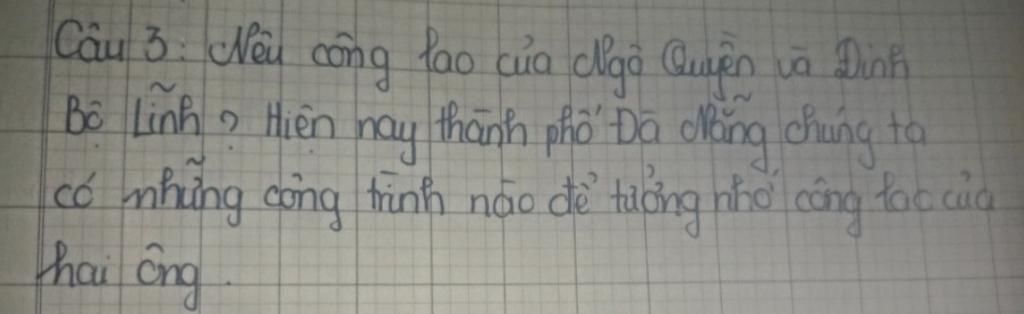 Câu 3: Nêu công lao của Ngô Quyền và Đinh
Bộ Lĩnh? Hiện nay thành phố Đà Nẵng chúng ta
có những công trình nào để tưởng nhớ công lao của
hai ông.